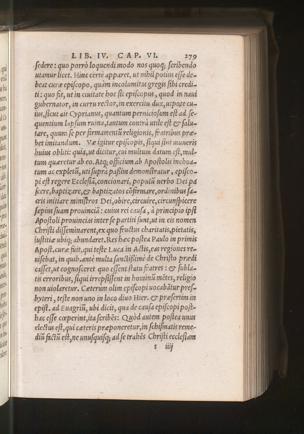 LIB. IV. CAP. VI. 279
sedere: quo porrò loquendi modo nos quoq; scribendo
utamur licet. Hinc certè apparet, ut nihil potius esse de-
beat curæ episcopo, quàm incolumitas gregis sibi credi-
ti: quo fit, ut in civitate hoc sit episcopus, quod in naui
gubernator, in curru rector, in exercitu dux, utpote cu-
ius, sicut ait Cyprianus, quantum perniciosum est ad se-
quentium lapsum ruina, tantum contrà utile est & salu-
tare, quum se per firmamentũ religionis, fratribus præ-
bet imitandum. Væ igitur episcopis, siqui sint muneris
huius obliti: quia, ut dicitur, cui multum datum est, mul-
tum quæretur ab eo. Atq; officium ab Apostolis inchoa-
tum ac expletũ, uti supra passim demonstratur, episco-
pi est regere Ecclesiã, concionari, populũ uerbo Dei pa
scere, baptizare, & baptizatos cõfirmare, ordinibus sa-
cris initiare ministros Dei, abire, circuire, circunspicere
sæpius suam prouinciã: cuius rei causa, à principio ipsi
Apostoli prouincias inter se partiti sunt, ut in eis nomen
Christi disseminarent, ex quo fructus charitatis, pietatis,
iustitiæ ubiq; abundaret. Res hæc postea Paulo in primis
Apost. curæ fuit, qui teste Luca in Actis, eas regiones re-
uisebat, in quib. antè multa sanctissimè de Christo prædi
casset, ac cognosceret quo essent statu fratres: & subla-
tis erroribus, siqui irrepsissent in hominũ mẽtes, religio
non uiolaretur. Cæterum olim episcopi uocabãtur pres-
byteri, teste non uno in loco diuo Hier. & præsertim in
epist. ad Euagriũ, ubi dicit, qua de causa episcopi post-
hac esse cœperint, ita scribẽs: Quòd autem postea unus
electus est, qui cæteris præponeretur, in schismatis reme-
diũ factũ est, ne unusquisq; ad se trahẽs Christi ecclesiam
s iiij